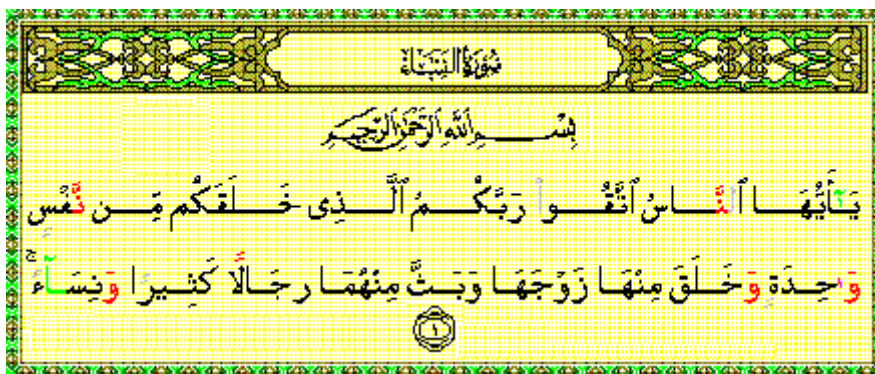 سُورَةُ النِّسَاءِ
بِسْمِ ٱللَّهِ ٱلرَّحْمَٰنِ ٱلرَّحِيمِ
يَـٰٓأَيُّهَا ٱلنَّاسُ ٱتَّقُوا۟ رَبَّكُمُ ٱلَّذِى خَلَقَكُم مِّن نَّفْسٍ
وَٰحِدَةٍ وَخَلَقَ مِنْهَا زَوْجَهَا وَبَثَّ مِنْهُمَا رِجَالًا كَثِيرًا وَنِسَآءً ۚ
١